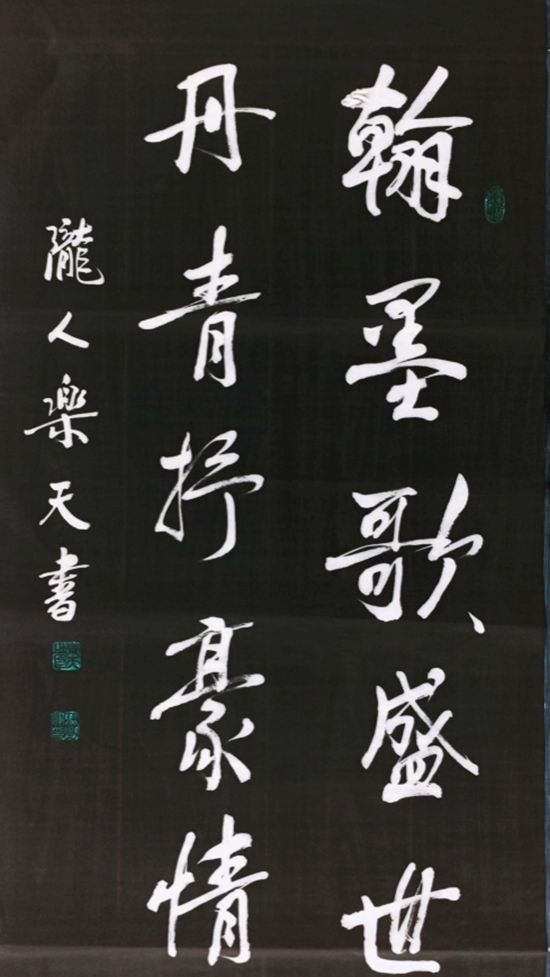 翰墨歌盛世
丹青抒豪情
隴人樂天書